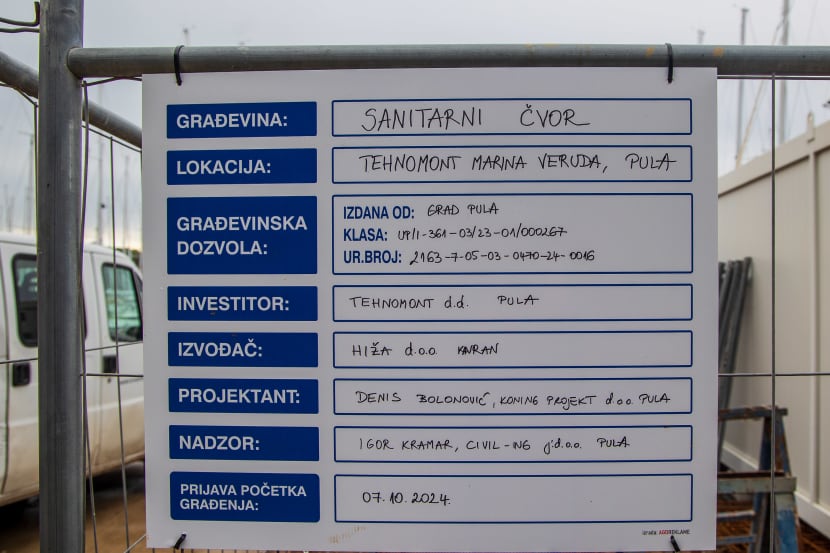 GRAĐEVINA: SANITARNI ČVOR
LOKACIJA: TEHNOMONT MARINA VERUDA, PULA
GRAĐEVINSKA DOZVOLA:
IZDANA OD: GRAD PULA
KLASA: UP/I-361-03/23-01/000267
UR.BROJ: 2163-7-05-03-0470-24-0016
INVESTITOR: TEHNOMONT d.d. PULA
IZVOĐAČ: HIŽA d.o.o.
PROJEKTANT: DENIS BOLONOVIĆ, KONING PROJEKT d.o.o. PULA
NADZOR: IGOR KRAMAR, CIVIL-ING j.d.o.o. PULA
PRIJAVA POČETKA
GRAĐENJA: 07.10.2024.
izrada: AGOREKLAME